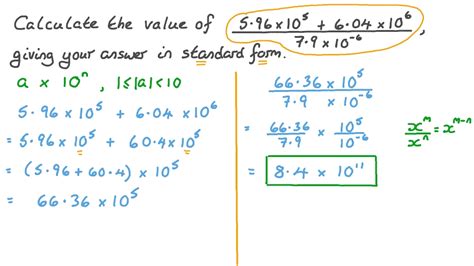 Calculate the value of (5.96×10⁵ + 6.04×10⁶)/(7.9×10⁻⁶),
giving your answer in standard form.
a × 10ⁿ, 1≤|a|<10
5.96×10⁵ + 6.04×10⁶
= 5.96×10⁵ + 60.4×10⁵
= (5.96+60.4) × 10⁵
= 66.36 × 10⁵
(66.36 × 10⁵)/(7.9 × 10⁻⁶)
= 66.36/7.9 × 10⁵/10⁻⁶
xᵐ/xⁿ = xᵐ⁻ⁿ
= 8.4 × 10¹¹